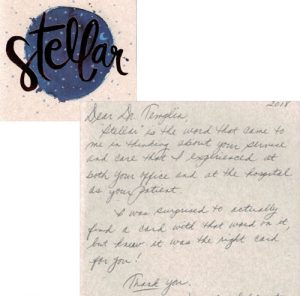 Stellar
2018
Dear Dr. Tenglin,
"Stellar" is the word that came to
me in thinking about your service
and care that I experienced at
both your office and at the hospital
as your patient.
I was surprised to actually
find a card with that word on it,
but knew it was the right card
for you!
Thank you.